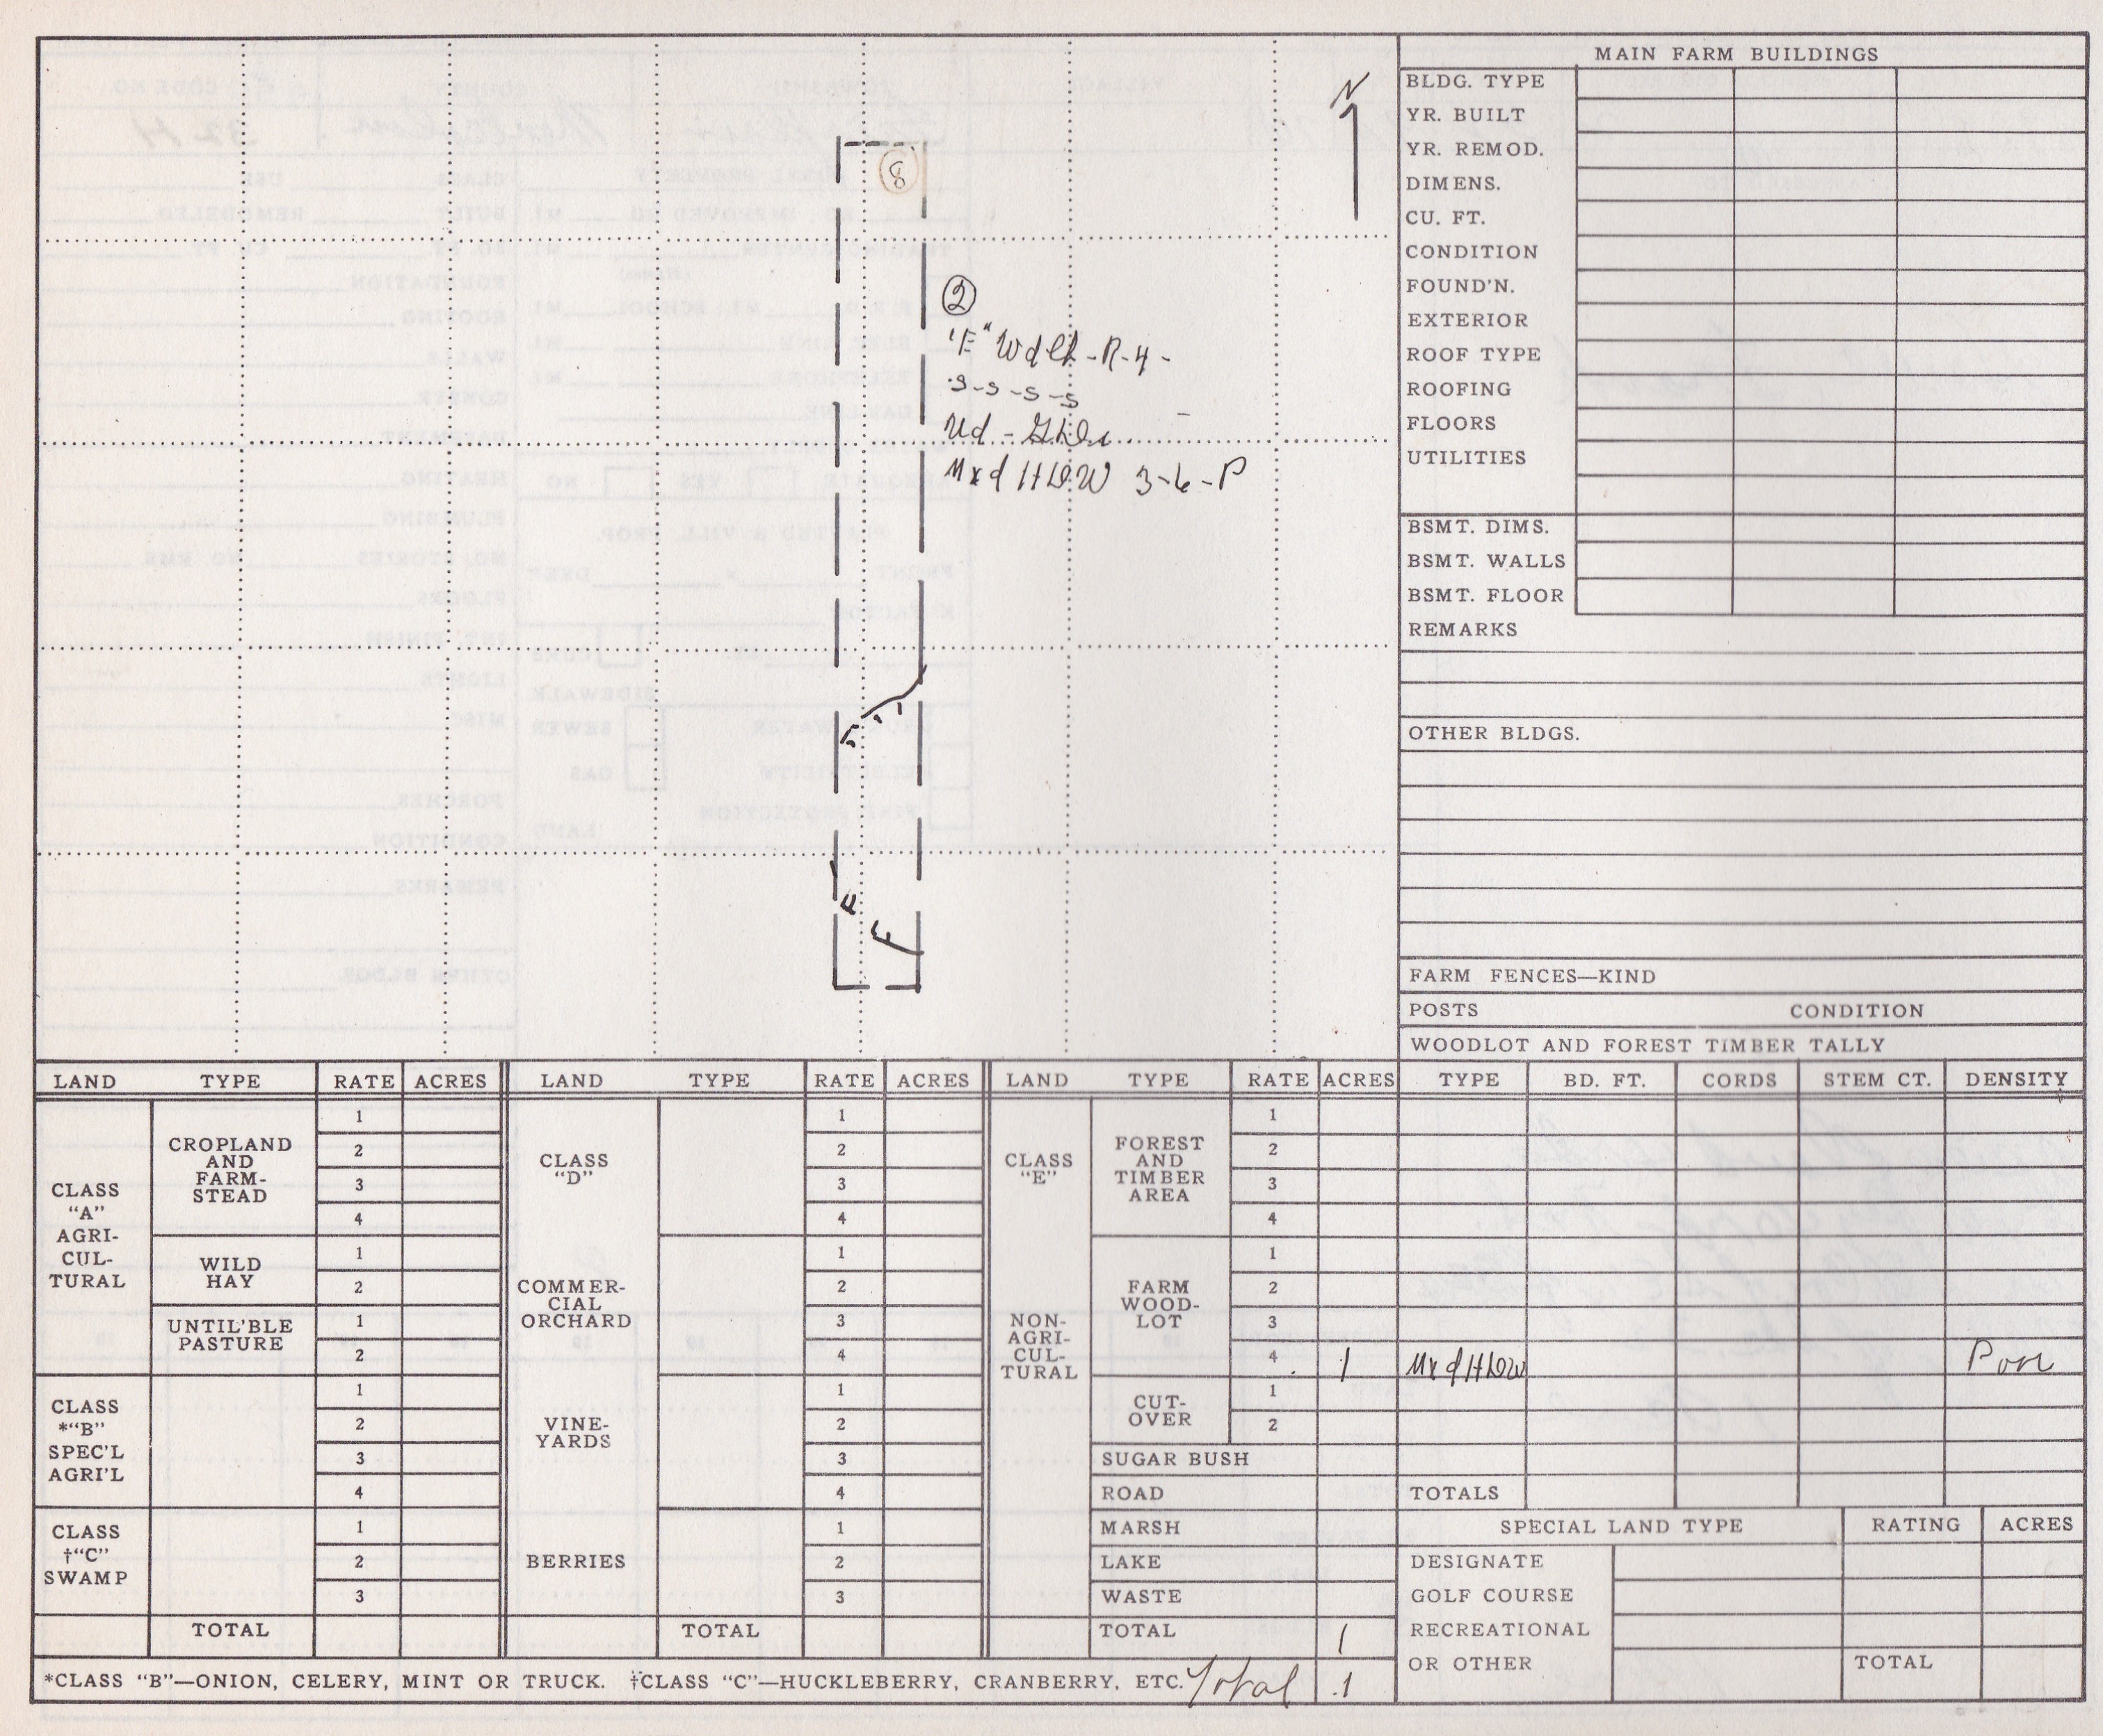 N
8
2
"E" Wdlt-R-4-
s-s-s-s
Ud-
Mxd HDW 3-6-P
MAIN FARM BUILDINGS
BLDG. TYPE
YR. BUILT
YR. REMOD.
DIMENS.
CU. FT.
CONDITION
FOUND'N.
EXTERIOR
ROOF TYPE
ROOFING
FLOORS
UTILITIES
BSMT. DIMS.
BSMT. WALLS
BSMT. FLOOR
REMARKS
OTHER BLDGS.
FARM FENCES—KIND
POSTS CONDITION
WOODLOT AND FOREST TIMBER TALLY
LAND TYPE RATE ACRES LAND TYPE RATE ACRES LAND TYPE RATE ACRES TYPE BD. FT. CORDS STEM CT. DENSITY
CLASS
"A"
AGRI-
CUL-
TURAL
CROPLAND
AND
FARM-
STEAD
1
2
3
4
WILD
HAY
1
2
UNTIL'BLE
PASTURE
1
2
CLASS
*"B"
SPEC'L
AGRI'L
1
2
3
4
CLASS
†"C"
SWAMP
1
2
3
TOTAL
CLASS
"D"
1
2
3
4
COMMER-
CIAL
ORCHARD
1
2
3
4
VINE-
YARDS
1
2
3
4
BERRIES
1
2
3
TOTAL
CLASS
"E"
NON-
AGRI-
CUL-
TURAL
FOREST
AND
TIMBER
AREA
1
2
3
4
FARM
WOOD-
LOT
1
2
3
4 1 Mxd HDW Poor
CUT-
OVER
1
2
SUGAR BUSH
ROAD
MARSH
LAKE
WASTE
TOTAL 1
TOTALS
SPECIAL LAND TYPE RATING ACRES
DESIGNATE
GOLF COURSE
RECREATIONAL
OR OTHER
TOTAL
*CLASS "B"—ONION, CELERY, MINT OR TRUCK. †CLASS "C"—HUCKLEBERRY, CRANBERRY, ETC. Total .1